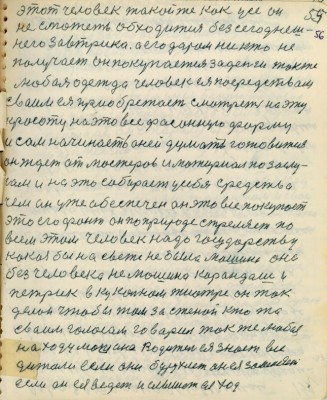 59
56
этот человек такой же как усе он
не сможеть обходится без сегоднеш-
него завтрика. а его даром никто не
получает он покупается за денги также
любая одежда человек ея посредствам
сваим ея приобретает смотреть на эту
красоту на это все фасонную форму
и сам начинаеть о ней думать готовится
он ждет от мостеров и материал по заслу-
гам и на это собирает у себя средства
чем он уже обеспечен он это все покупает
это его фронт он по природе стреляет по
всем этом человек надо государству
какая бы на свете не была машина она
без человека не машина карандаш и
петрик в кукольном театре он так
делал чтобы там за стеной кто та
сваим голосам говарил так же любая
на ходу машина Водитель ея знает все
детали если они
если он ея ведет и слышит ея ход